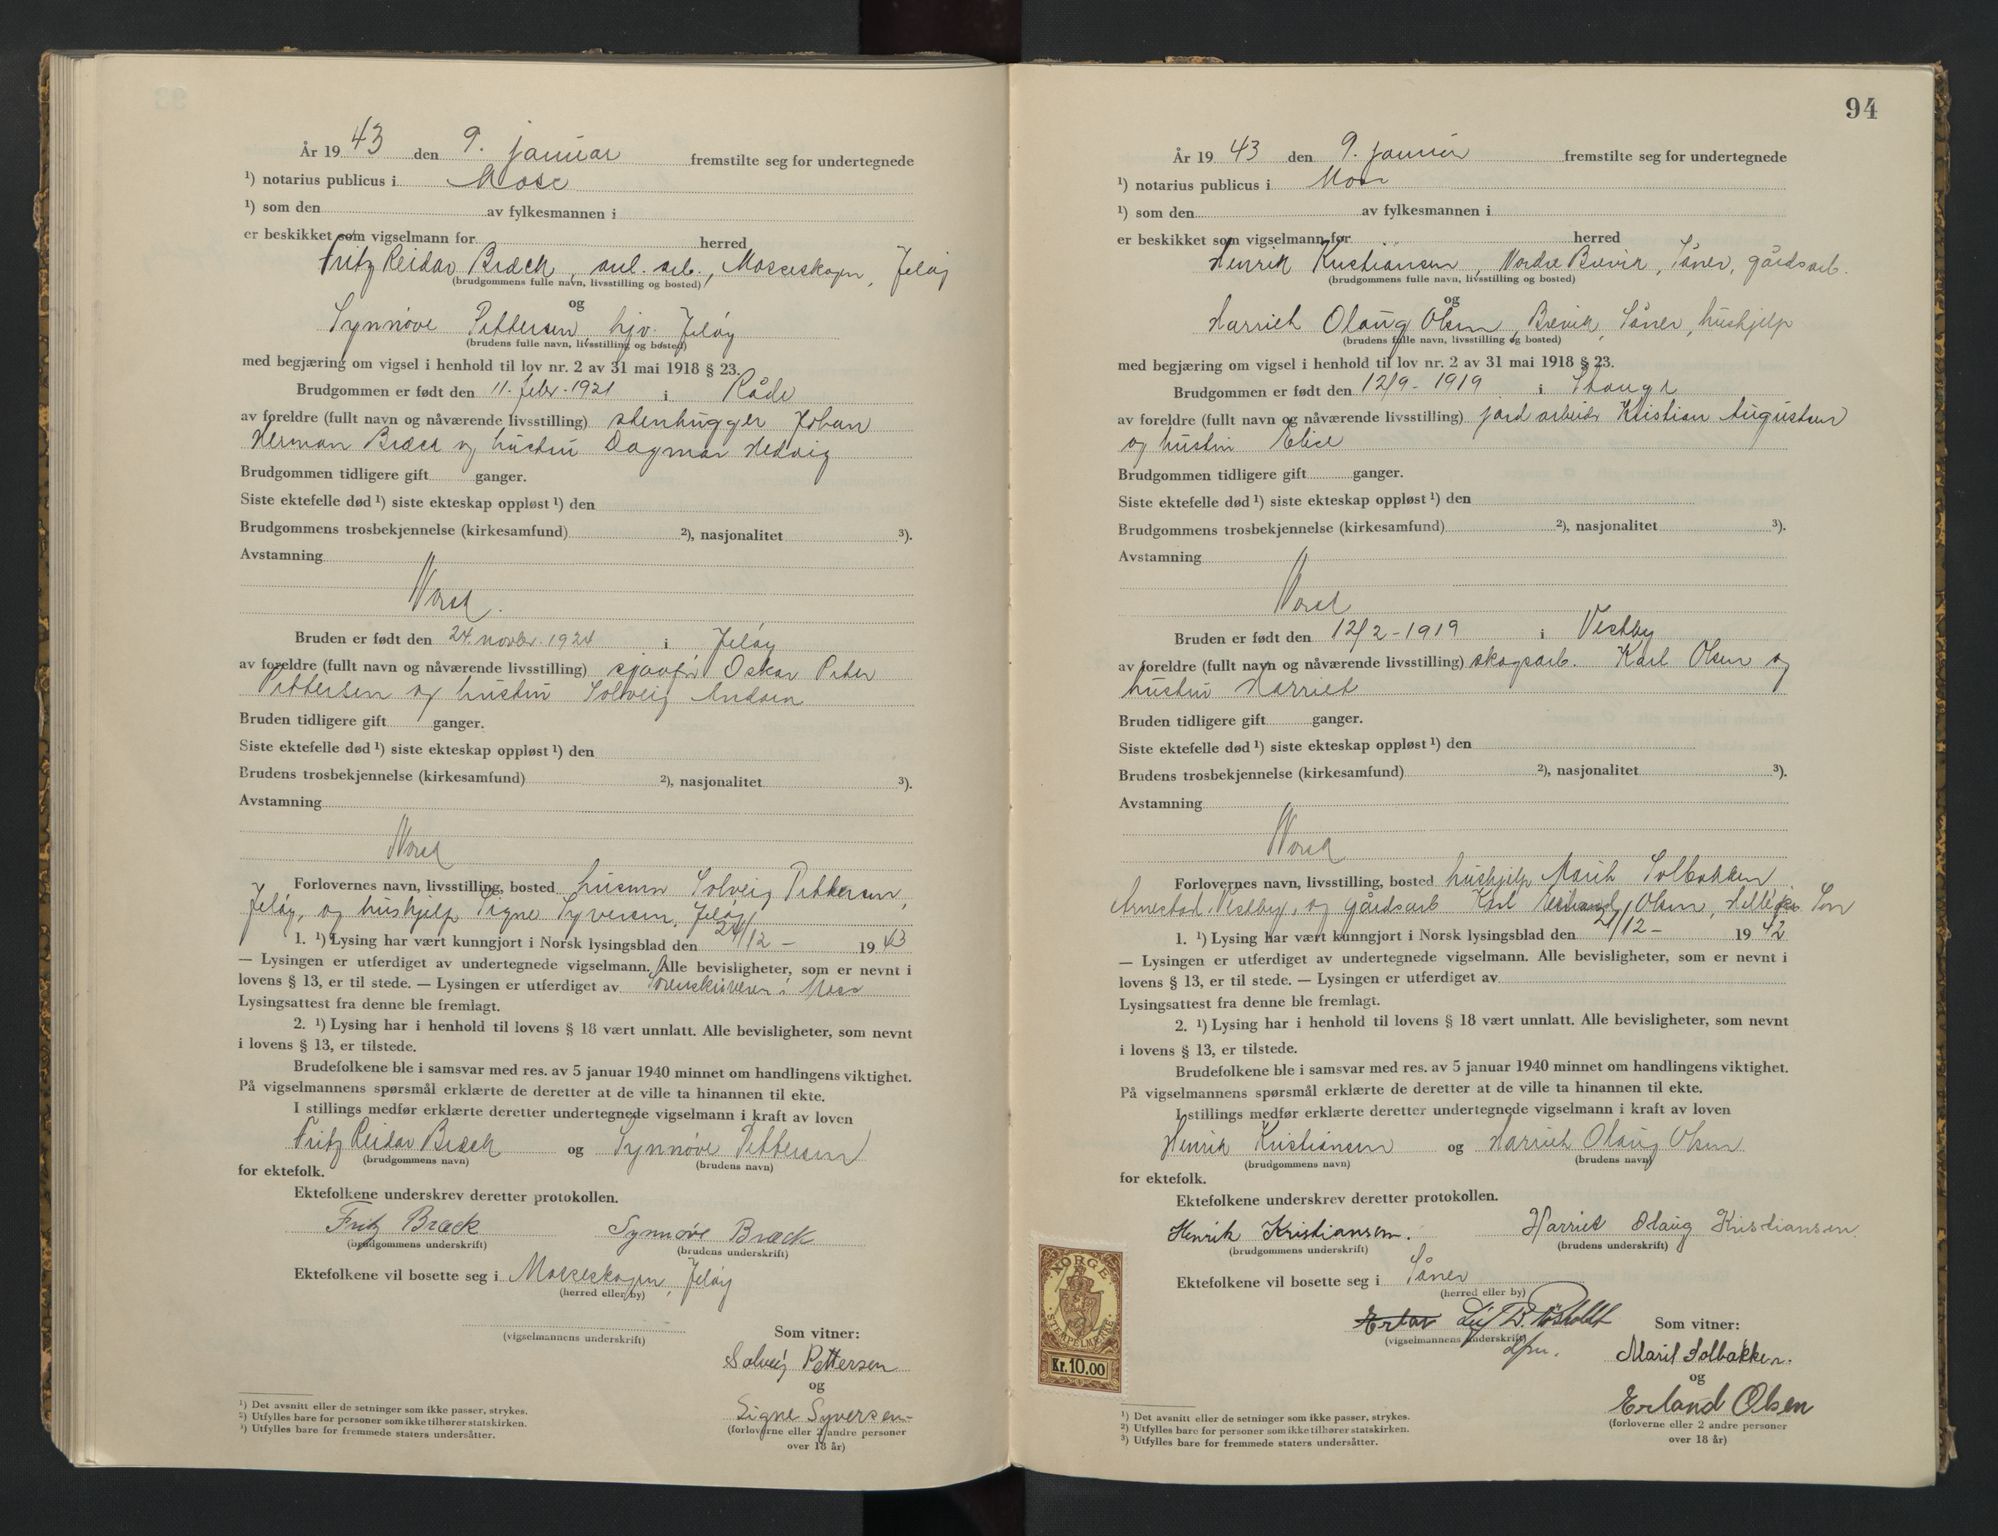 År 19 43 den 9. januar fremstilte seg for undertegnede
¹) notarius publicus i Moss
¹) som den av fylkesmannen i
er beskikket som vigselmann for herred
Fritz Reidar Bræck, anl. arb., Mosseskogen, Jeløy
(brudgommens fulle navn, livsstilling og bosted)
og
Synnøve Pettersen hjv. Jeløy
(brudens fulle navn, livsstilling og bosted)
med begjæring om vigsel i henhold til lov nr. 2 av 31 mai 1918 § 23.
Brudgommen er født den 11. febr. 1921 i Råde
av foreldre (fullt navn og nåværende livsstilling) stenhugger Johan
Herman Bræck og hustru Dagmar Hedvig
Brudgommen tidligere gift ganger.
Siste ektefelle død ¹) siste ekteskap oppløst ¹) den
Brudgommens trosbekjennelse (kirkesamfund) ²), nasjonalitet ³).
Avstamning
Norsk.
Bruden er født den 24. novbr. 1924 i Jeløy
av foreldre (fullt navn og nåværende livsstilling) sjåafør Oskar Peter
Pettersen og hustru Solveig
Bruden tidligere gift ganger.
Siste ektefelle død ¹) siste ekteskap oppløst ¹) den
Brudens trosbekjennelse (kirkesamfund) ²), nasjonalitet ³).
Avstamning
Norsk
Forlovernes navn, livsstilling, bosted husmor Solveig Pettersen,
Jeløy, og hushjelp Signe Syversen, Jeløy
1. ¹) Lysing har vært kunngjort i Norsk lysingsblad den 24/12 - 19 43
— Lysingen er utferdiget av undertegnede vigselmann. Alle bevisligheter, som er nevnt i
lovens § 13, er til stede. — Lysingen er utferdiget av Sorenskriveren i Moss
Lysingsattest fra denne ble fremlagt.
2. ¹) Lysing har i henhold til lovens § 18 vært unnlatt. Alle bevisligheter, som nevnt
i lovens § 13, er tilstede.
Brudefolkene ble i samsvar med res. av 5 januar 1940 minnet om handlingens viktighet.
På vigselmannens spørsmål erklærte de deretter at de ville ta hinannen til ekte.
I stillings medfør erklærte deretter undertegnede vigselmann i kraft av loven
Fritz Reidar Bræck og Synnøve Pettersen
(brudgommens navn) (brudens navn)
for ektefolk.
Ektefolkene underskrev deretter protokollen.
Fritz Bræck Synnøve Bræck
(brudgommens underskrift) (brudens underskrift)
Ektefolkene vil bosette seg i Mosseskogen, Jeløy
(herred eller by)
(vigselmannens underskrift) Som vitner:
Solveig Pettersen
og
Signe Syversen
(forloverne eller 2 andre personer
over 18 år)
¹) Det avsnitt eller de setninger som ikke passer, strykes.
²) Utfylles bare for personer som ikke tilhører statskirken.
³) Utfylles bare for fremmede staters undersåtter.
94
År 19 43 den 9. januar fremstilte seg for undertegnede
¹) notarius publicus i Moss
¹) som den av fylkesmannen i
er beskikket som vigselmann for herred
Henrik Kristiansen, Nordre Brevik, Såner, gårdsarb.
(brudgommens fulle navn, livsstilling og bosted)
og
Harriet Olaug Olsen, Brevik, Såner, hushjelp
(brudens fulle navn, livsstilling og bosted)
med begjæring om vigsel i henhold til lov nr. 2 av 31 mai 1918 § 23.
Brudgommen er født den 12/9 - 1919 i
av foreldre (fullt navn og nåværende livsstilling) jordarbeider Kristian Augustsen
og hustru Elise
Brudgommen tidligere gift ganger.
Siste ektefelle død ¹) siste ekteskap oppløst ¹) den
Brudgommens trosbekjennelse (kirkesamfund) ²), nasjonalitet ³).
Avstamning
Norsk
Bruden er født den 12/2 - 1919 i Vestby
av foreldre (fullt navn og nåværende livsstilling) skogsarb. Karl Olsen og
hustru Harriet
Bruden tidligere gift ganger.
Siste ektefelle død ¹) siste ekteskap oppløst ¹) den
Brudens trosbekjennelse (kirkesamfund) ²), nasjonalitet ³).
Avstamning
Norsk
Forlovernes navn, livsstilling, bosted hushjelp Marit Solbakken
Arnestad, Vestby, og gårdsarb Karl Erland Olsen,
1. ¹) Lysing har vært kunngjort i Norsk lysingsblad den 21/12 - 19 42
— Lysingen er utferdiget av undertegnede vigselmann. Alle bevisligheter, som er nevnt i
lovens § 13, er til stede. — Lysingen er utferdiget av
Lysingsattest fra denne ble fremlagt.
2. ¹) Lysing har i henhold til lovens § 18 vært unnlatt. Alle bevisligheter, som nevnt
i lovens § 13, er tilstede.
Brudefolkene ble i samsvar med res. av 5 januar 1940 minnet om handlingens viktighet.
På vigselmannens spørsmål erklærte de deretter at de ville ta hinannen til ekte.
I stillings medfør erklærte deretter undertegnede vigselmann i kraft av loven
Henrik Kristiansen og Harriet Olaug Olsen
(brudgommens navn) (brudens navn)
for ektefolk.
Ektefolkene underskrev deretter protokollen.
Henrik Kristiansen. Harriet Olaug Kristiansen
(brudgommens underskrift) (brudens underskrift)
Ektefolkene vil bosette seg i Såner
(herred eller by)
(vigselmannens underskrift) Som vitner:
Marit Solbakken.
og
Erland Olsen
(forloverne eller 2 andre personer
over 18 år)
NORGE
STEMPELMERKE
Kr. 10.00
¹) Det avsnitt eller de setninger som ikke passer, strykes.
²) Utfylles bare for personer som ikke tilhører statskirken.
³) Utfylles bare for fremmede staters undersåtter.